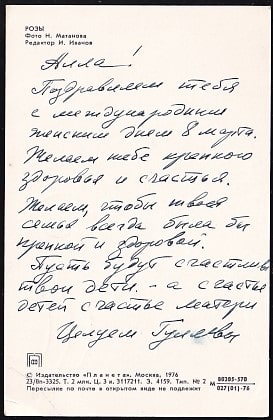 РОЗЫ
Фото Н. Матанова
Редактор И. Иванов
Алла!
Поздравляем тебя
с международным
женским днем 8 марта.
Желаем тебе крепкого
здоровья и счастья.
Желаем, чтобы твоя
семья всегда была бы
крепкой и здоровой.
Пусть будут счастливы
твои дети. - а счастье
детей счастье матери
Целуем
© Издательство «Планета». Москва, 1976
23/Вп-3325. Т. 2 млн. Ц. 3 к. 3117211. Э. 4159. Тип. № 2
Пересылать по почте в открытом виде не подлежит
М 80285-578
027(01)-76